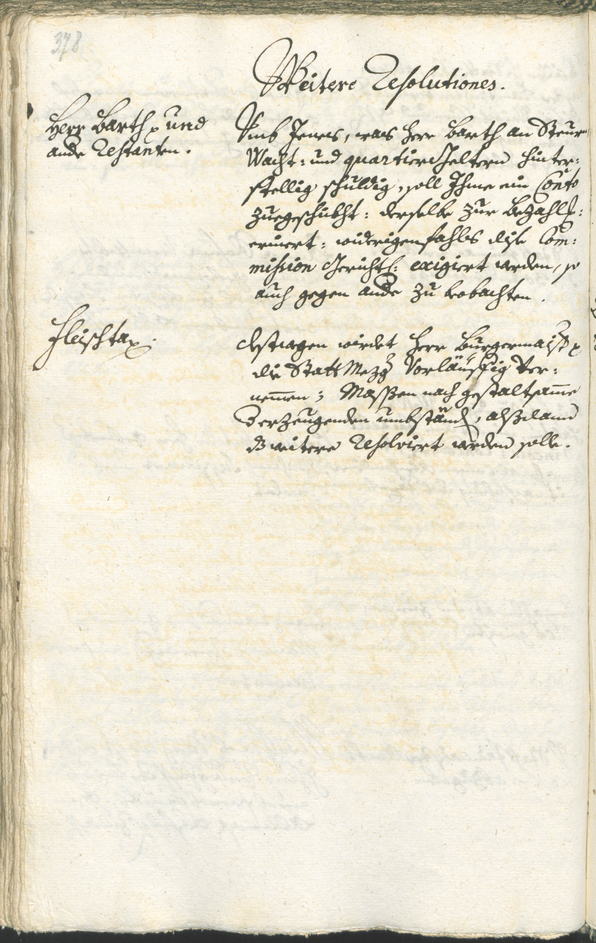 378
Weitere Resolutiones.
Herr Barth und
andre Restanten.
Umb Jenes, was herr Barth an Steur
Wacht- und quartiers Geltern hinter-
stellig schuldig, soll Ihme ein Conto
zuegeschickht: derselbe zur bezahlg:
erinert: widrigenfahls dise Com-
mission gerichtl: exigiert werden, so
auch gegen andre zu beobachten.
Fleischtax.
destwegen wirdet herr Burgermaister
die Statt Mezg Vorläuffig Ver-
nemmen; Massen nach gestaltsame
der umbständ, alßdann
weitere Resolviert werden solle.